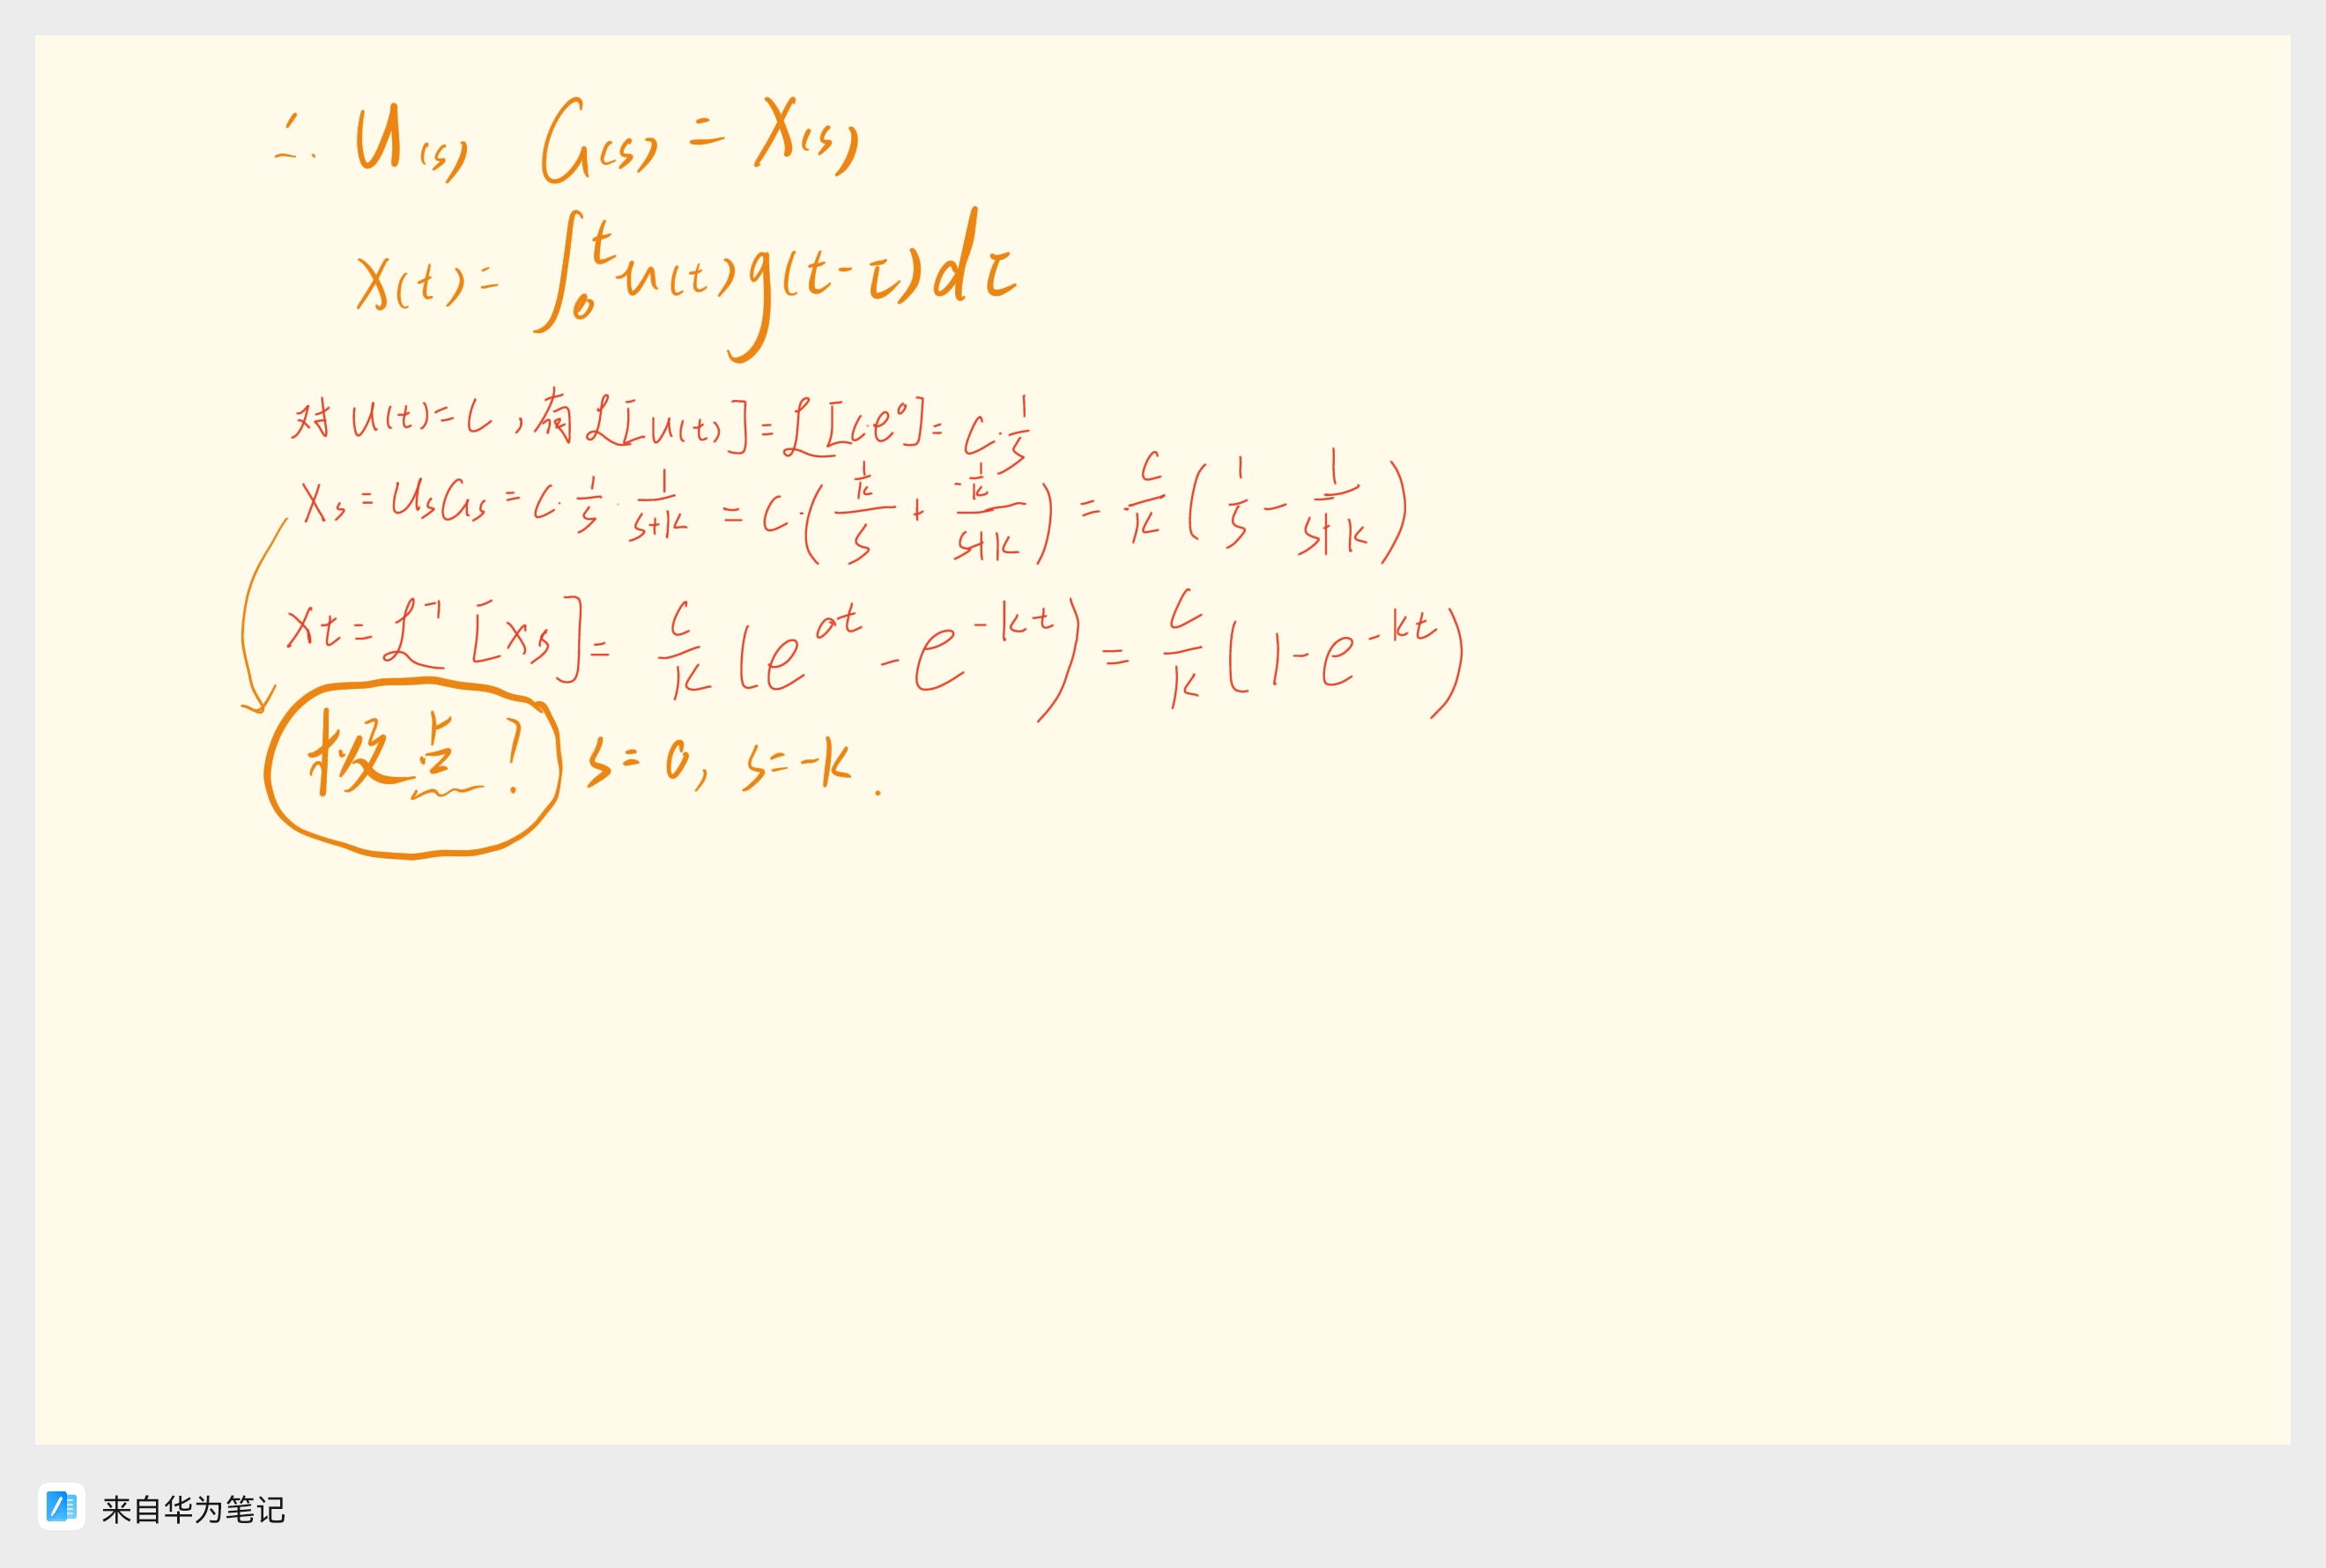 ∴ U(s) G(s) = X(s)
X(t) = ∫₀ᵗ u(t) g(t-τ) dτ
对 U(t) = C , 有 ℒ[U(t)] = ℒ[C·e⁰] = C·1/s
Xs = UsGs = C·1/s·1/(s+k) = C·((1/k)/s + (-1/k)/(s+k)) = C/k (1/s - 1/(s+k))
Xt = ℒ⁻¹[Xs] = C/k (e^(0t) - e^(-kt)) = C/k (1 - e^(-kt))
极点! s=0, s=-k.
来自华为笔记